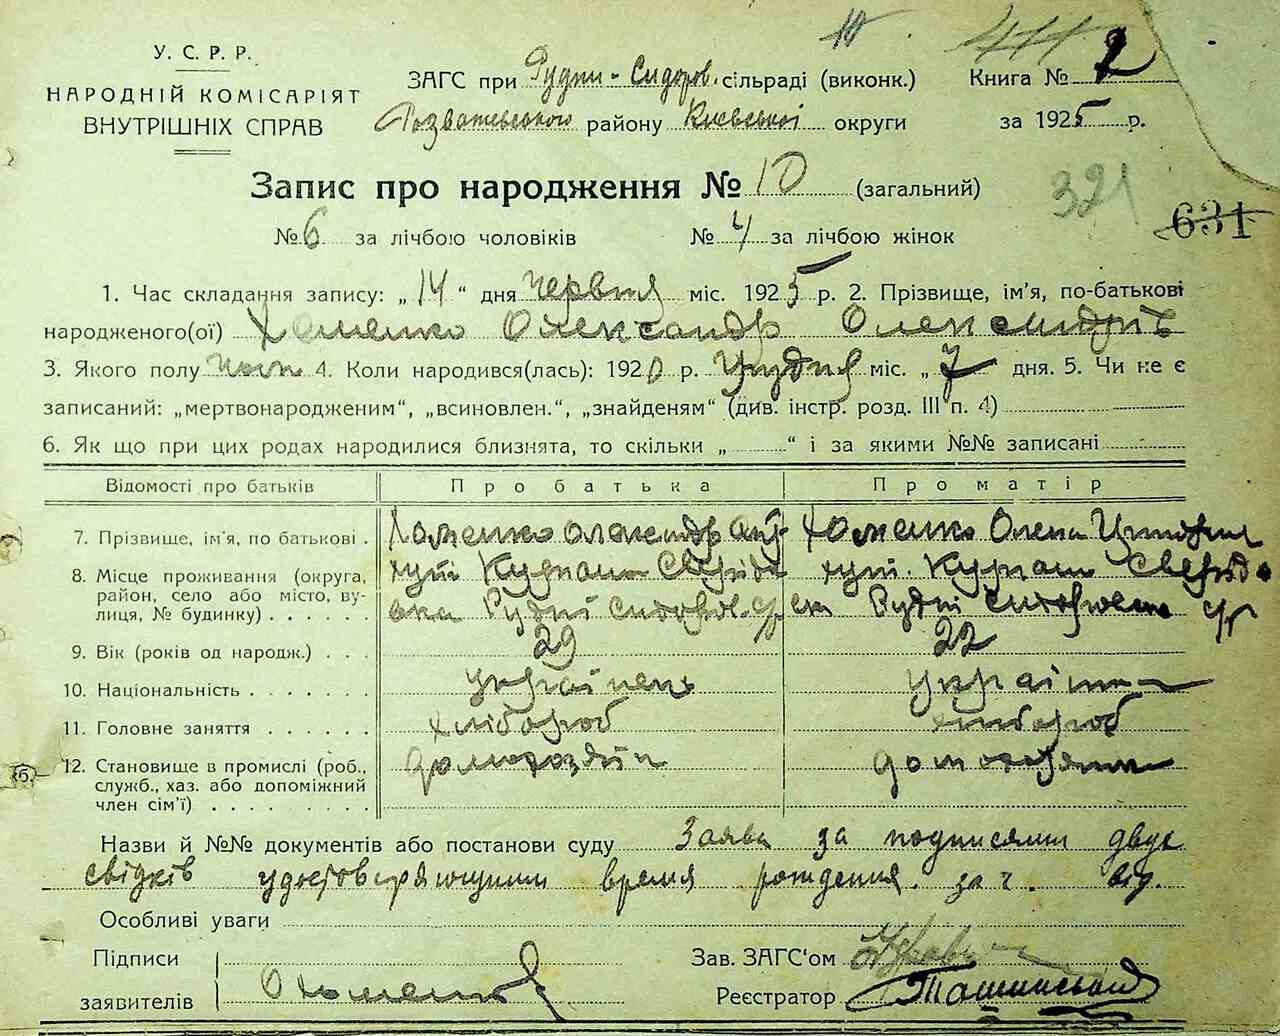 У. С. Р. Р.
НАРОДНІЙ КОМІСАРІЯТ
ВНУТРІШНІХ СПРАВ
ЗАГС при Рудни-Сидоров. сільраді (виконк.) Книга № 2
Розважевського району Киевської округи за 1925 р.
Запис про народження № 10 (загальний)
321
631
№ 6 за лічбою чоловіків № 4 за лічбою жінок
1. Час складання запису: „ 14 “ дня червня міс. 1925 р. 2. Прізвище, ім'я, по-батькові
народженого(ої) Хоменко Олександр Олександрів
3. Якого полу чол 4. Коли народився(лась): 1920 р. грудня міс. „ 7 дня. 5. Чи не є
записаний: „мертвонародженим“, „всиновлен.“, „знайденям“ (див. інстр. розд. III п. 4)
6. Як що при цих родах народилися близнята, то скільки „ “ і за якими №№ записані
Відомості про батьків Про батька Про матір
7. Прізвище, ім'я, по батькові . Хоменко Олександр Хоменко Олена
8. Місце проживання (округа, хут. хут.
район, село або місто, ву-
лиця, № будинку) . . . . . . Рудні Сидоров. Рудні
9. Вік (років од народж.) . . . 29 22
10. Національність . . . . . . . українець українка
11. Головне заняття . . . . . . хлібороб хлібороб
12. Становище в промислі (роб., домохозяїн
служб., хаз. або допоміжний
член сім'ї) . . . . . . . . . .
Назви й №№ документів або постанови суду Заява за подписями двух
свідків удостоверяющими время рождения. за ч.
Особливі уваги
Підписи Зав. ЗАГС'ом
заявителів О Хоменко Реєстратор